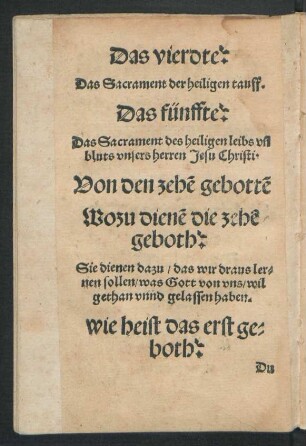 Das vierdte?
Das Sacrament der heiligen tauff.
Das fünffte?
Das Sacrament des heiligen leibs vñ
bluts vnsers herren Jesu Christi.
Von den zehē gebottē
Wozu dienē die zehē
geboth?
Sie dienen dazu / das wir draus ler-
nen sollen / was Gott von vns / wil
gethan vnnd gelassen haben.
wie heist das erst ge-
both?
Du